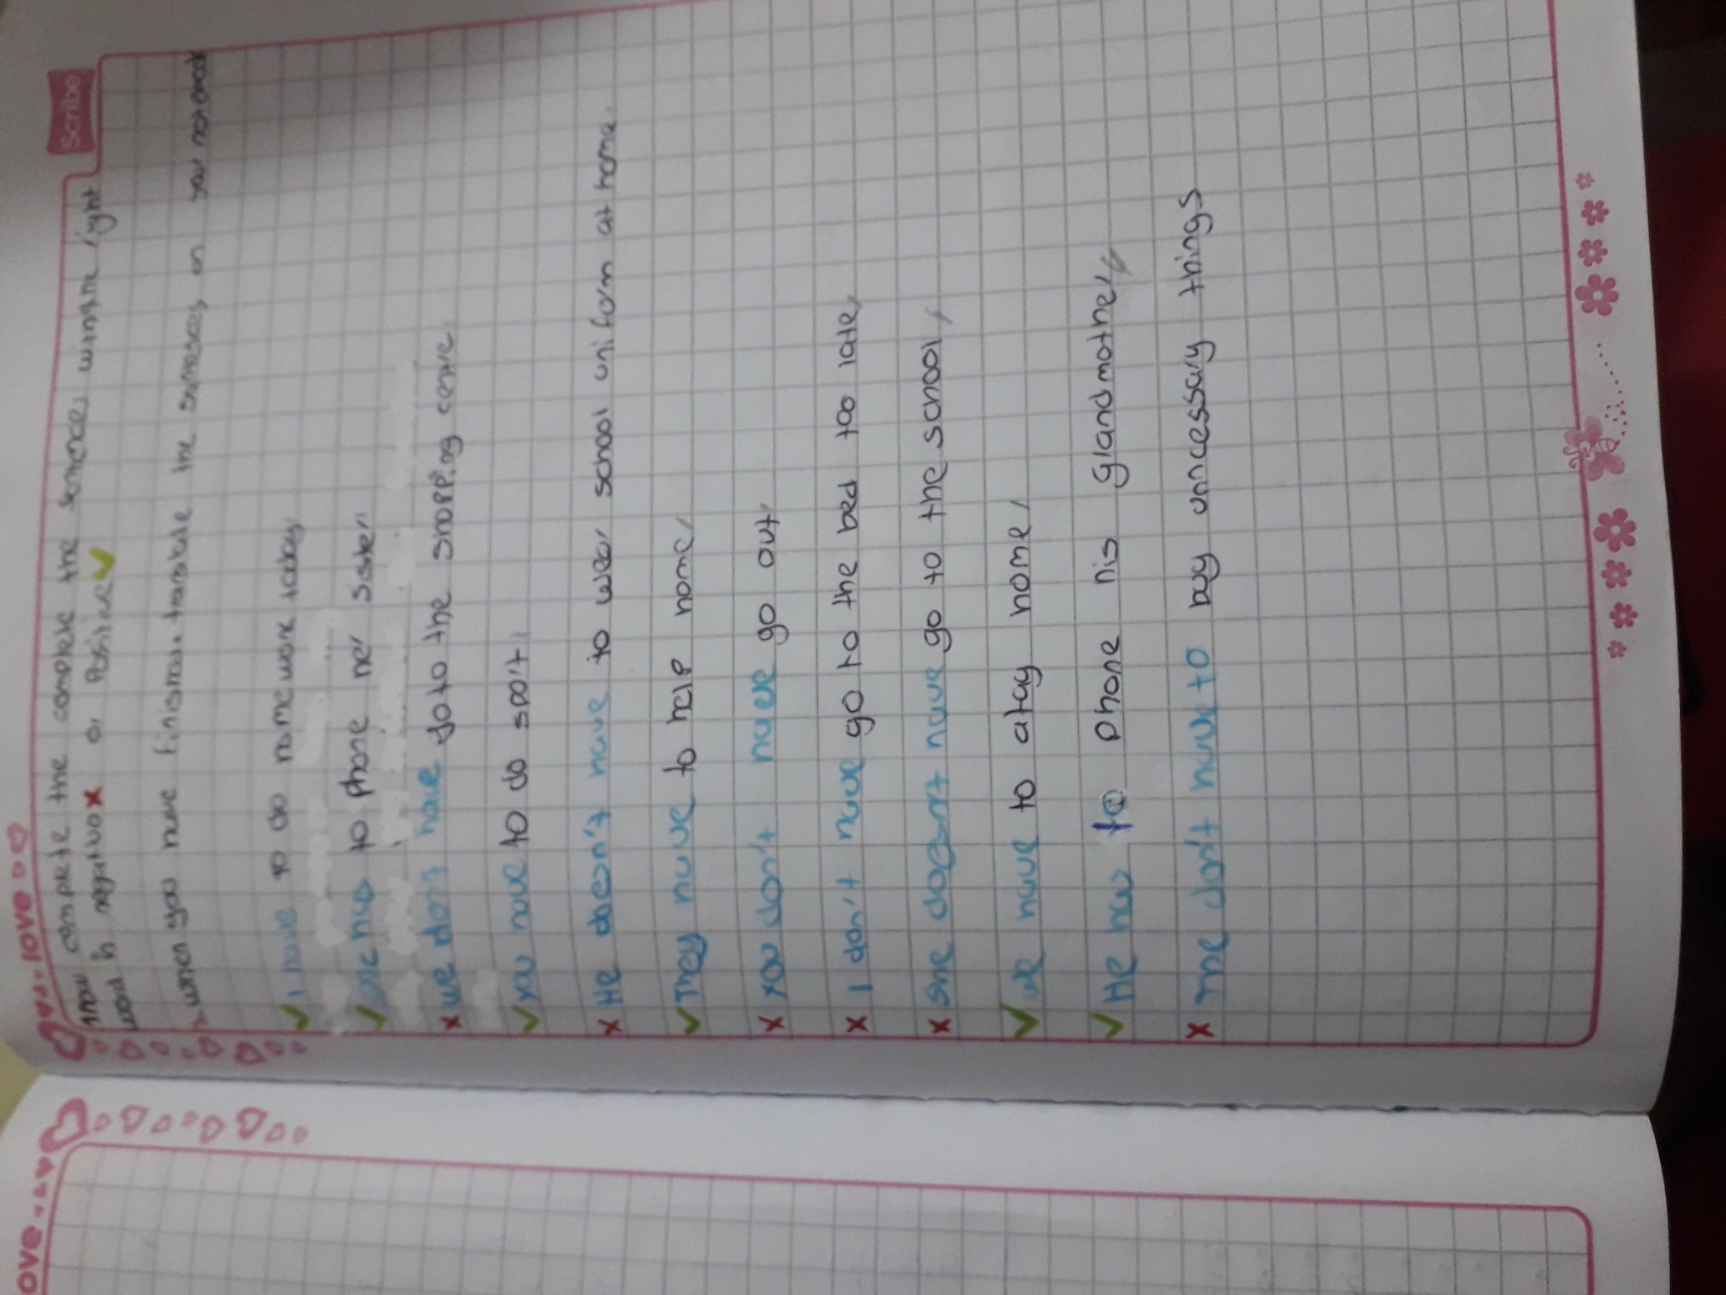 Scribe
love
Now complete the complete the sentences using the right
word in negative x or Positive ✓
when you have finished. translate the sentences on your notebook
✓ I have to do homework today
✓ she has to phone her sister
x we don't have go to the shopping centre
✓ You have to do sport
x He doesn't have to wear school uniform at home
✓ They have to help home
x You don't have go out
x I don't have go to the bed too late
x She doesnt have go to the school
✓ we have to atay home
✓ He has to phone his grandmother
x The don't have to buy unncessary things
ove